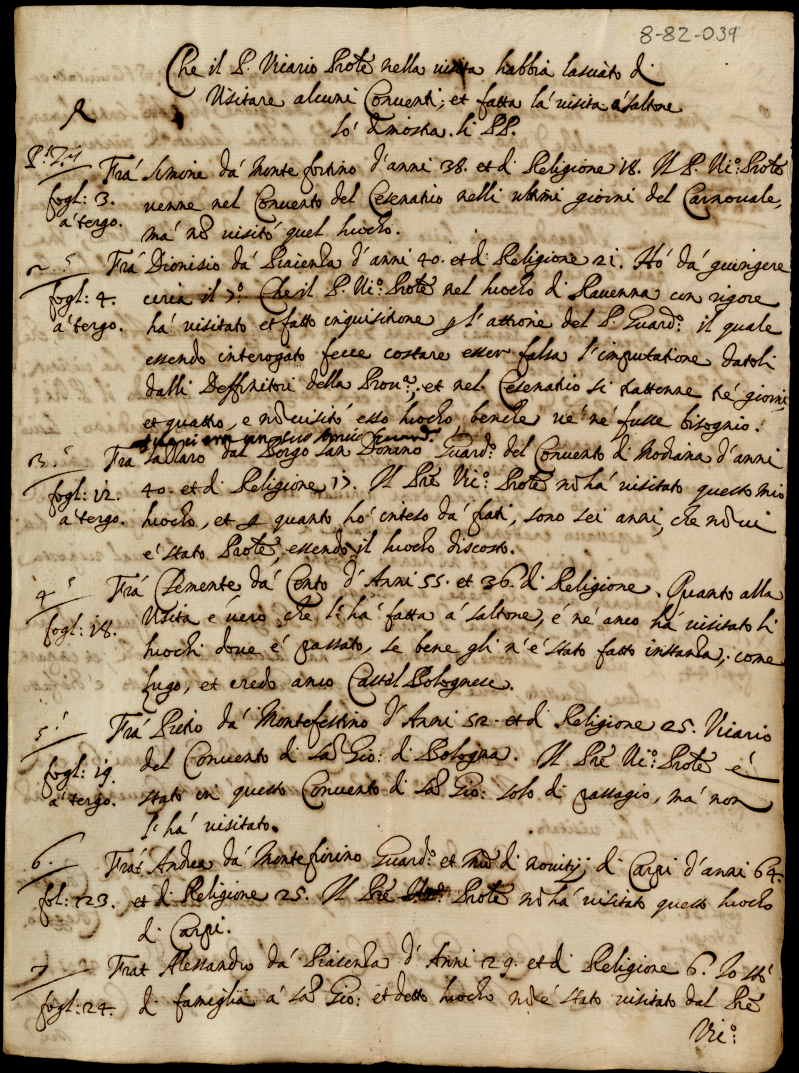 8-82-039
Che il P. Vicario Prole nella visita habbia lasciato di
Visitare alcuni Conventi; et fatta la visita à saltone
lo dimostra. li PP.
Frà Simone dà Monte fortino d'anni 38. et di Religione 18. Il P. Vic.º Prole
fogl: 3. venne nel Convento del Cesenatio nelli ultimi giorni del Carnovale,
à tergo. mà nõ visitò quel luocho.
2.º Frà Dionisio dà Piacenza d'anni 40. et di Religione 21. Hò dà
fogl: 4. circa il 7.º Che il P. Vic.º Prole nel luocho di Ravenna con rigore
à tergo. hà visitato et fatto inquisitione p l'attione del P. Guard.º il quale
essendo interogato fecce costare esser falsa l'imputatione datoli
dalli Deffinitori della Prov.ª, et nel Cesenatio si trattenne trè giorni,
et quatto, e nõ visitò esso luocho, benche ve n'è fusse bisognio.
3.º Frà dal Borgo San Donino Guard.º del Convento di Modiana d'anni
fogl: 12. 40. et di Religione 17. Il Prẽ Vic.º Prole nõ hà visitato questo mio
à tergo. luocho, et p quanto hò inteso dà frati, sono sei anni, che nõ vi
è stato Prole, essendo il luocho discosto.
4.º Frà Clemente dà Cento d'Anni 55. et 36. di Religione. Quanto alla
fogl: 18. Visita è vero che l'hà fatta à saltone, e nè anco hà visitato li
luochi dove è passato, se bene gli n'è stato fatto instanza, come
Lugo, et credo anco Castel Bolognese.
5.º Frà Pietro dà Montefestino d'Anni 52. et di Religione 25. Vicario
fogl: 19. del Convento di Sã Gio: di Bologna. Il Prẽ Vic.º Prole è
à tergo. stato in questo Convento di Sã Gio: solo di passagio, mà non
l'hà visitato.
6. Frat Andrea dà Montefiorino Guard.º et mrõ di novitij di Carpi d'anni 64.
fol: 23. et di Religione 25. Il Prẽ Prole nõ hà visitato questo luocho
di Carpi.
7 Frat Alessandro dà Piacenza d'Anni 29. et di Religione 6. Io stò
fogl: 24. di famiglia à Sã Gio: et detto luocho nõ è stato visitato dal Prẽ
Vic.º